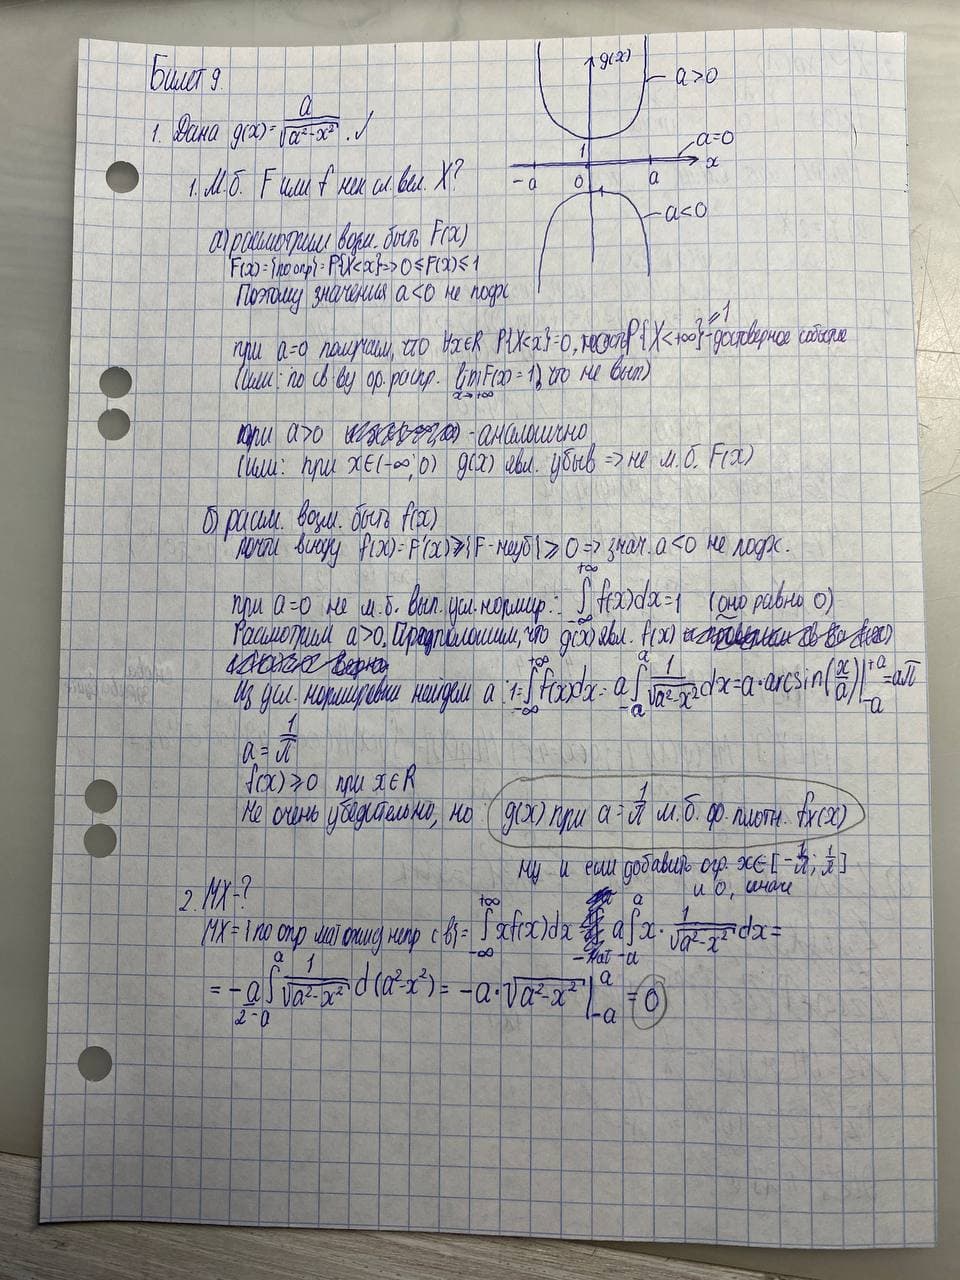 Билет 9.
1. Дана g(x) = a/√(a²-x²). ✓
g(x)
a>0
a=0
x
1
-a 0 a
a<0
1. М.б. F или f нек сл. вел. X?
а) рассмотрим возм. быть F(x)
F(x)={по опр}=P{X<x}=>0≤F(x)≤1
Поэтому значения a<0 не подх
при a=0 получаем, что ∀x∈R P{X<x}=0, но P{X<+∞}=1 - достоверное событие
(или: по св-ву ф. распр. lim F(x)=1, что не вып)
x→+∞
при a>0 - аналогично
(или: при x∈(-∞;0) g(x) явл. убыв => не м.б. F(x)
б) рассм. возм. быть f(x)
почти всюду f(x)=F'(x)≥{F-неуб}≥0 => знач. a<0 не подх.
при a=0 не м.б. вып. усл. нормир: ∫_{-∞}^{+∞} f(x)dx=1 (оно равно 0)
Рассмотрим a>0. Предположим, что g(x) явл. f(x)
Из усл. нормировки найдем a: 1=∫_{-∞}^{+∞} f(x)dx = a∫_{-a}^{a} 1/√(a²-x²) dx = a·arcsin(x/a)|_{-a}^{+a} = aπ
a = 1/π
f(x)≥0 при x∈R
Не очень убедительно, но g(x) при a=1/π м.б. ф. плотн. fx(x)
ну и если добавить огр. x∈[-1/π; 1/π]
и 0, иначе
2. MX-?
MX={по опр мат ожид непр с в}=∫_{-∞}^{+∞} xf(x)dx = a∫_{-a}^{a} x·1/√(a²-x²) dx=
= -a/2 ∫_{-a}^{a} 1/√(a²-x²) d(a²-x²) = -a·√(a²-x²)|_{-a}^{a} = 0